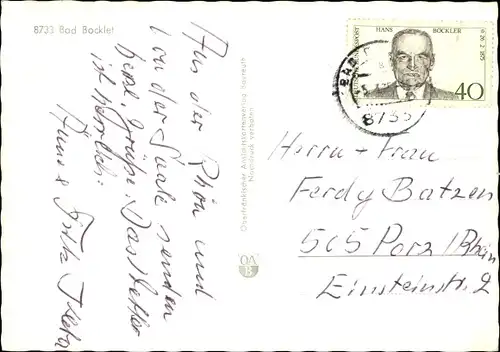 8733 Bad Bocklet
Aus der Rhön und
von der Saale senden
herzl. Grüße. Das Wetter
ist herrlich.
Fritz
Oberfränkischer Ansichtskartenverlag Bayreuth
Nachdruck verboten
OA
B
DEUTSCHE BUNDESPOST
HANS BÖCKLER
40
8733
Herrn + Frau
Ferdy Batzen
505 Porz/Rhein
Einsteinstr. 2